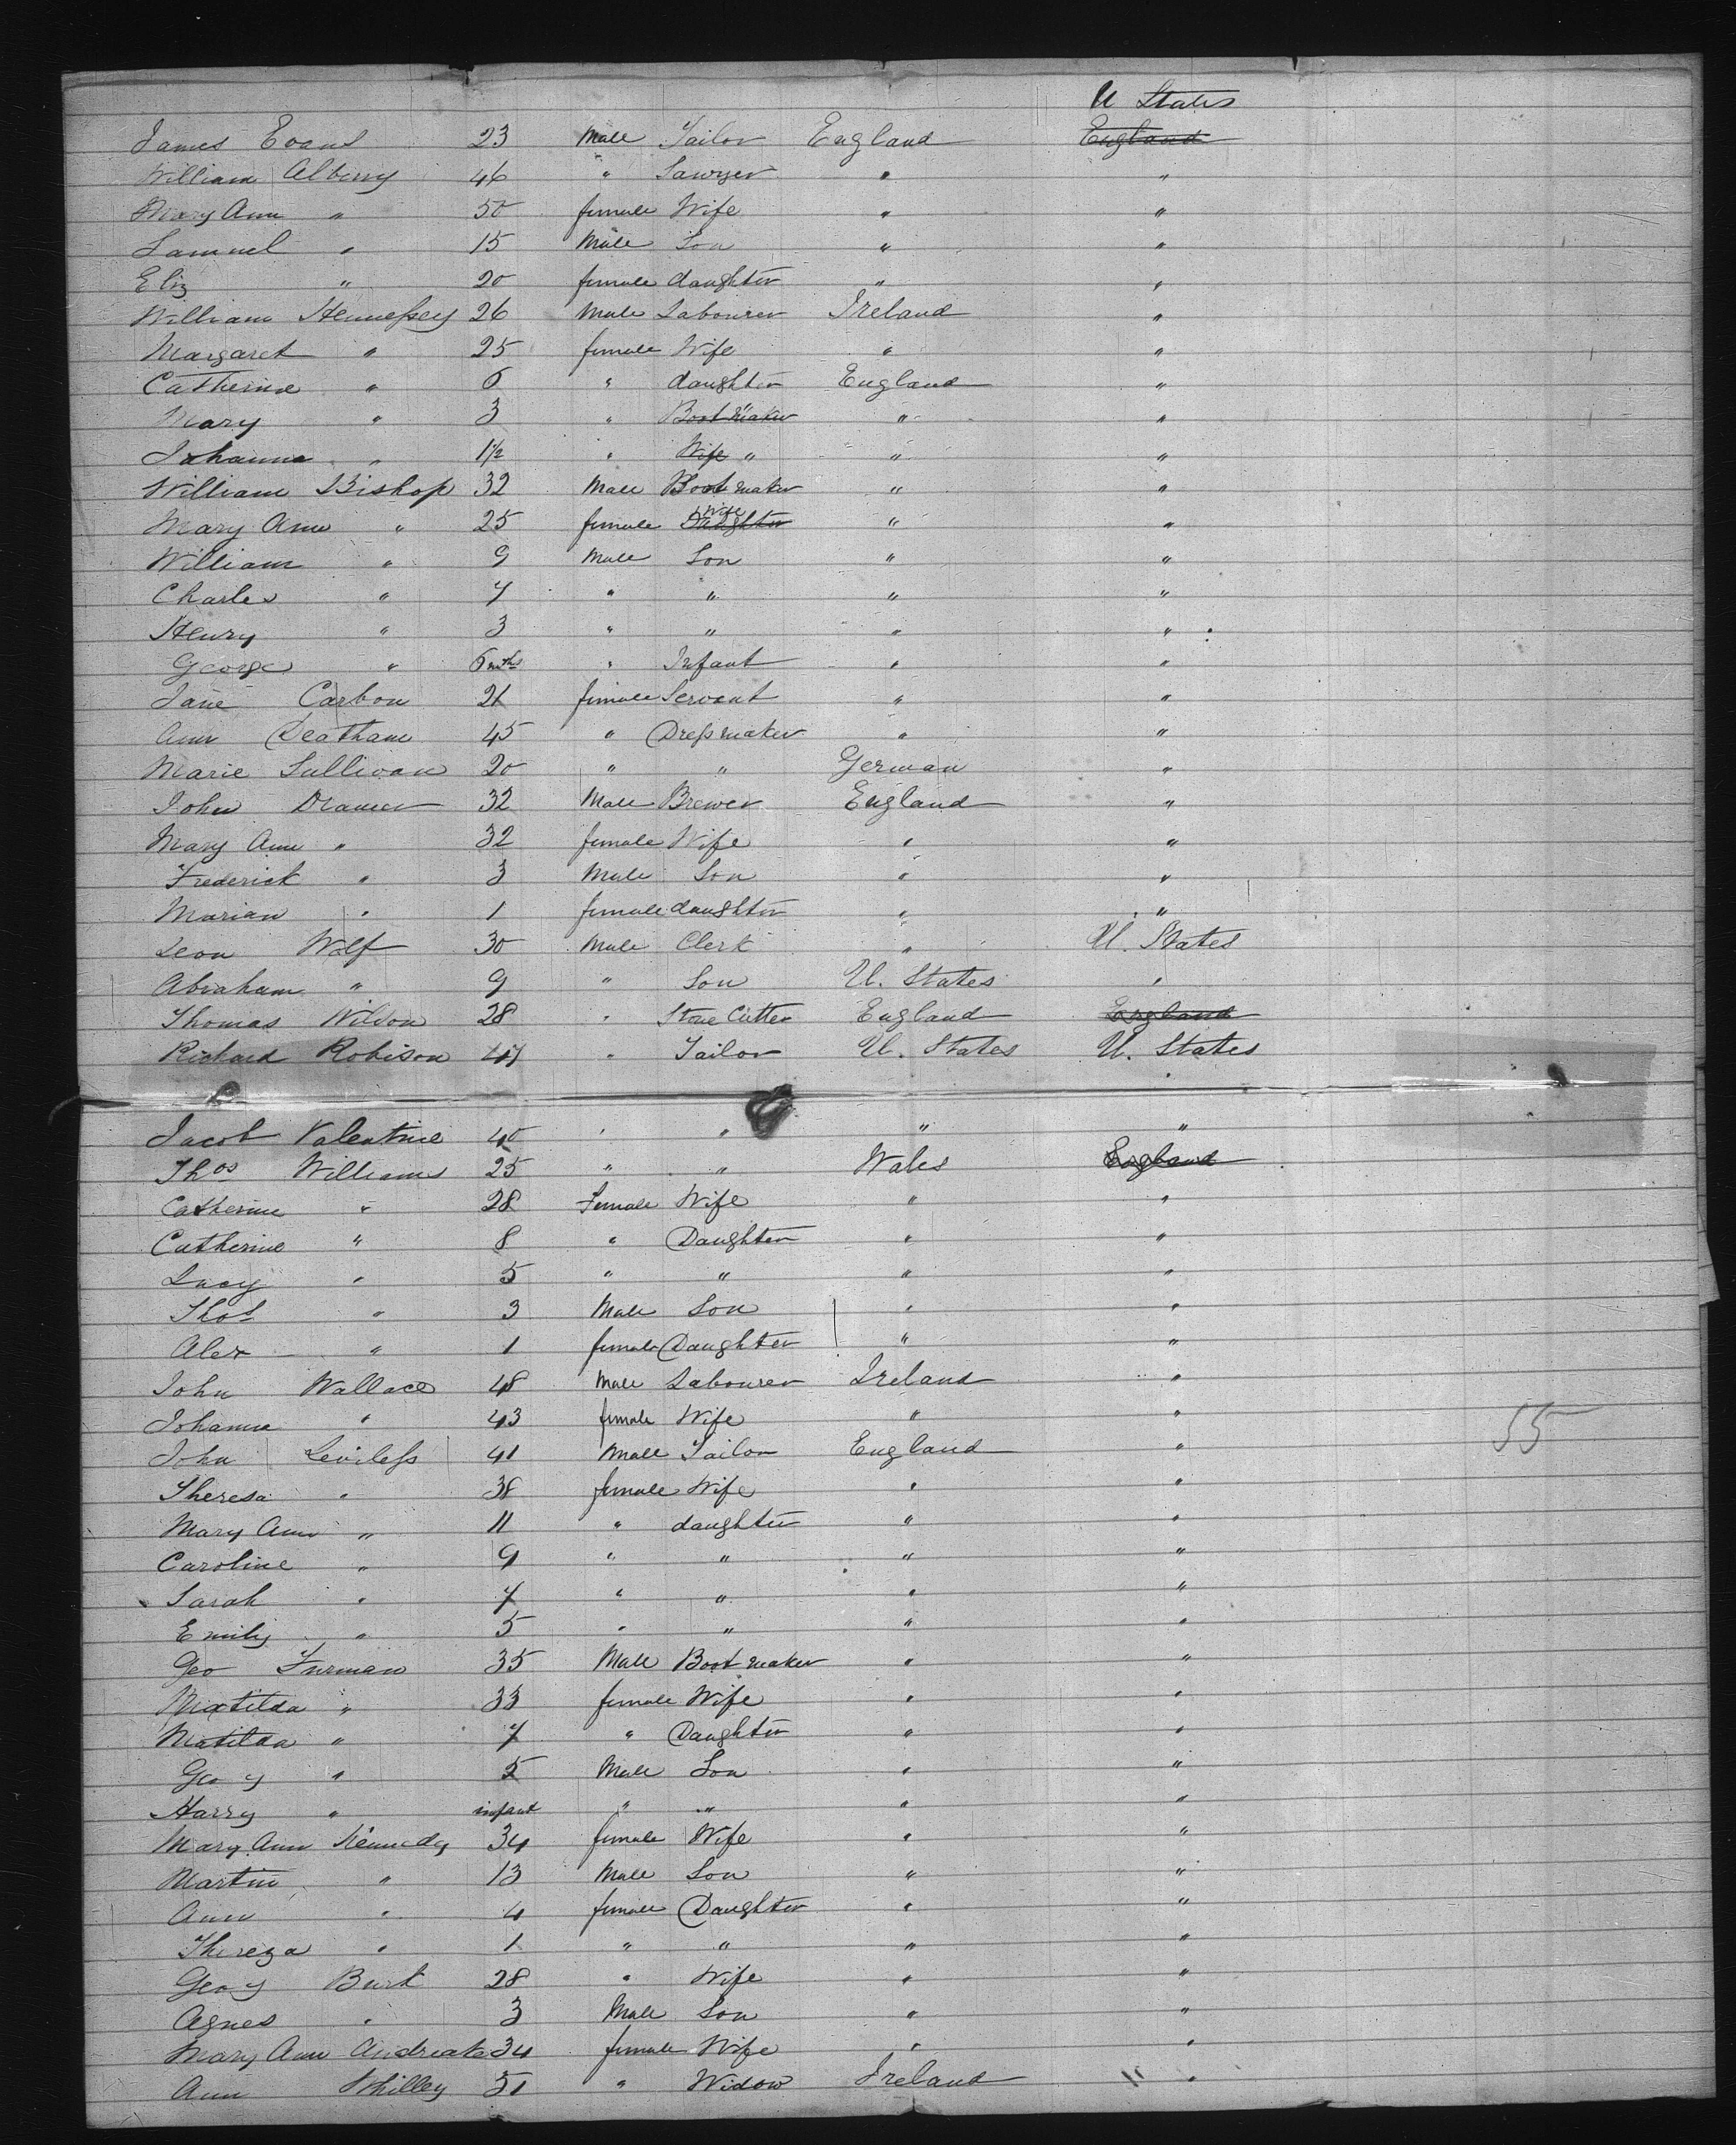 U States
James Evans 23 Male Tailor England England
William Albery 46 " Sawyer " "
Mary Ann " 50 female Wife " "
Samuel " 15 Male Son " "
Eliz " 20 female daughter " "
William Hennessey 26 Male Labourer Ireland "
Margaret " 25 female Wife " "
Catherine " 6 " daughter England "
Mary " 3 " Boot maker " " "
Johanna " 1½ " Wife " " "
William Bishop 32 Male Boot maker " "
Mary Ann " 25 female Daughter Wife " "
William " 9 Male Son " "
Charles " 7 " " " "
Henry " 3 " " " "
George " 6 mths " Infant " "
Jane Carbon 21 female Servant " "
Ann Deatham 45 " Dressmaker " "
Marie Sullivan 20 " " German "
John 32 Male Brewer England "
Mary Ann " 32 female Wife " "
Frederick " 3 Male Son " "
Marian " 1 female daughter " "
Leon Wolf 30 Male Clerk " U. States
Abraham " 9 " Son U. States "
Thomas Wildon 28 " Stone Cutter England England
Richard Robison 47 " Tailor U. States U. States
Jacob Valentine 40 " " " "
Thos Williams 25 " " Wales England
Catherine " 28 Female Wife " "
Catherine " 8 " Daughter " "
Lucy " 5 " " " "
Thos " 3 Male Son " "
Alex " 1 female Daughter " "
John Wallace 48 Male Labourer Ireland "
Johanna " 43 female Wife " " 55
John Leviless 41 Male Tailor England "
Theresa " 38 female Wife " "
Mary Ann " 11 " daughter " "
Caroline " 9 " " " "
Sarah " 7 " " " "
Emily " 5 " " " "
Geo Furman 35 Male Boot maker " "
Matilda " 33 female Wife " "
Matilda " 7 " Daughter " "
Geo y " 5 Male Son " "
Harry " infant " " " "
Mary Ann Kennedy 34 female Wife " "
Martin " 13 Male Son " "
Ann " 4 female Daughter " "
Thereza " 1 " " " "
Geo y Burt 28 " Wife " "
Agnes " 3 Male Son " "
Mary Ann 34 female Wife " "
Ann 51 " Widow Ireland " "